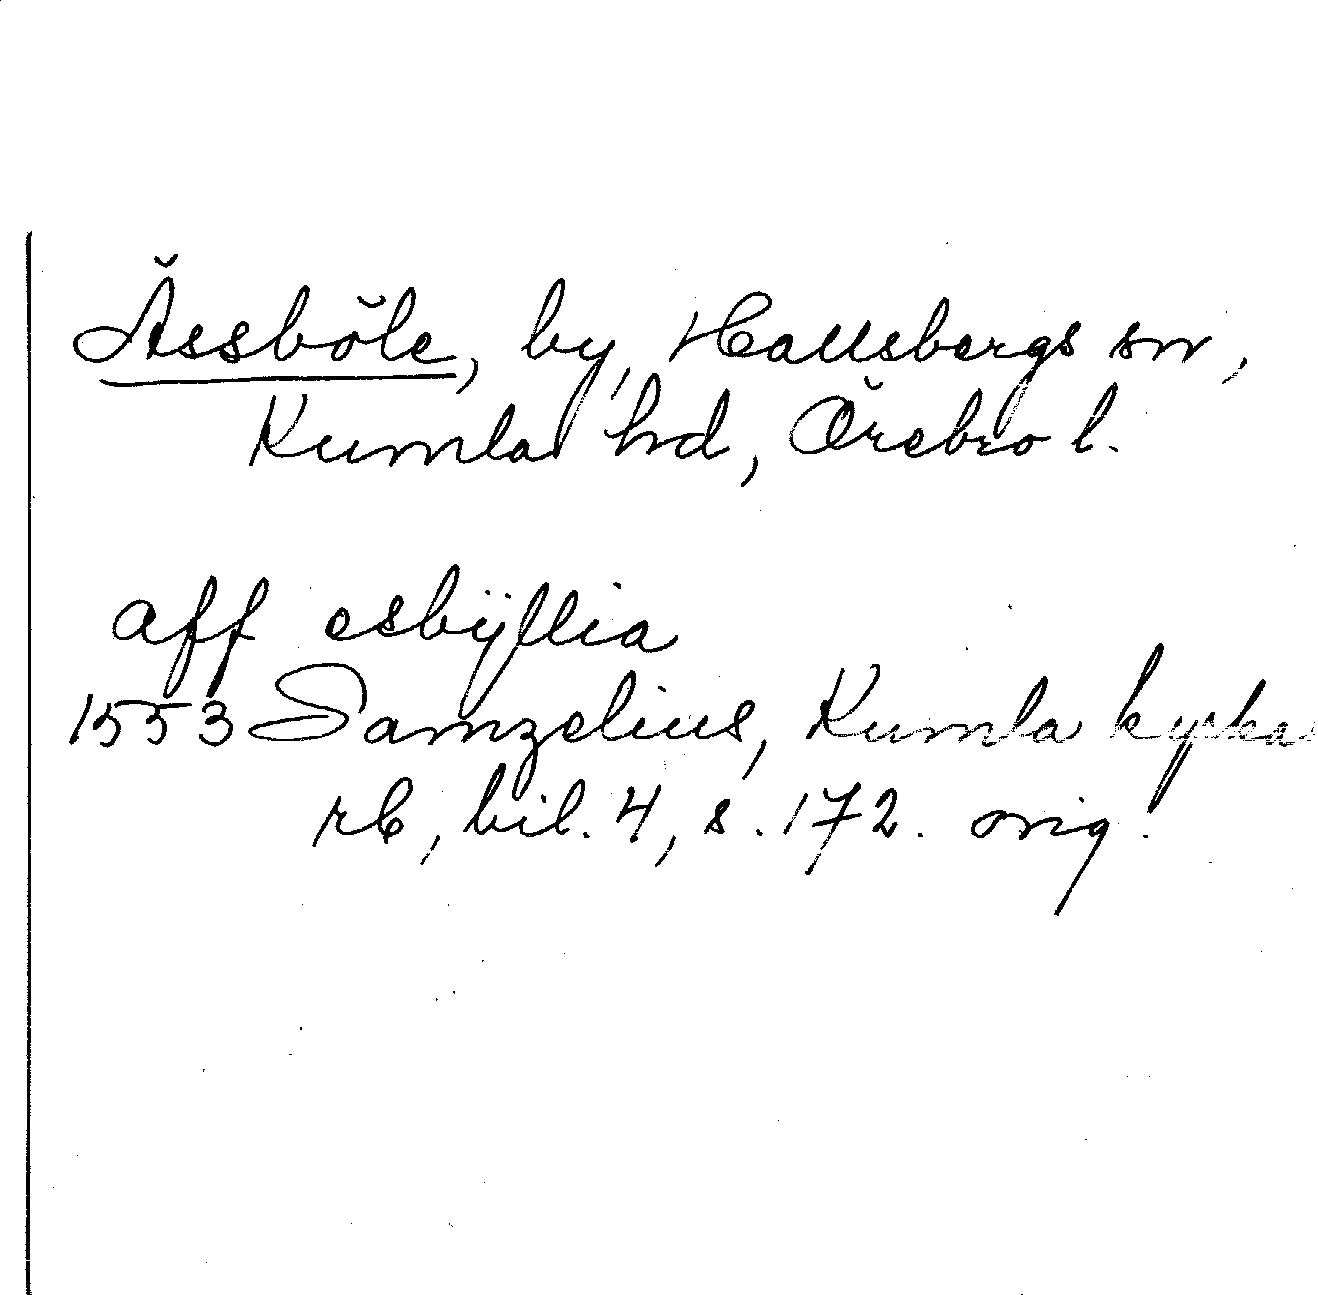 Ässböle, by, Hallsbergs sn,
Kumla hd, Örebro l.
aff esbÿllia
1553 Samzelius, Kumla kyrkas
rb, bil. 4, s. 172. orig.